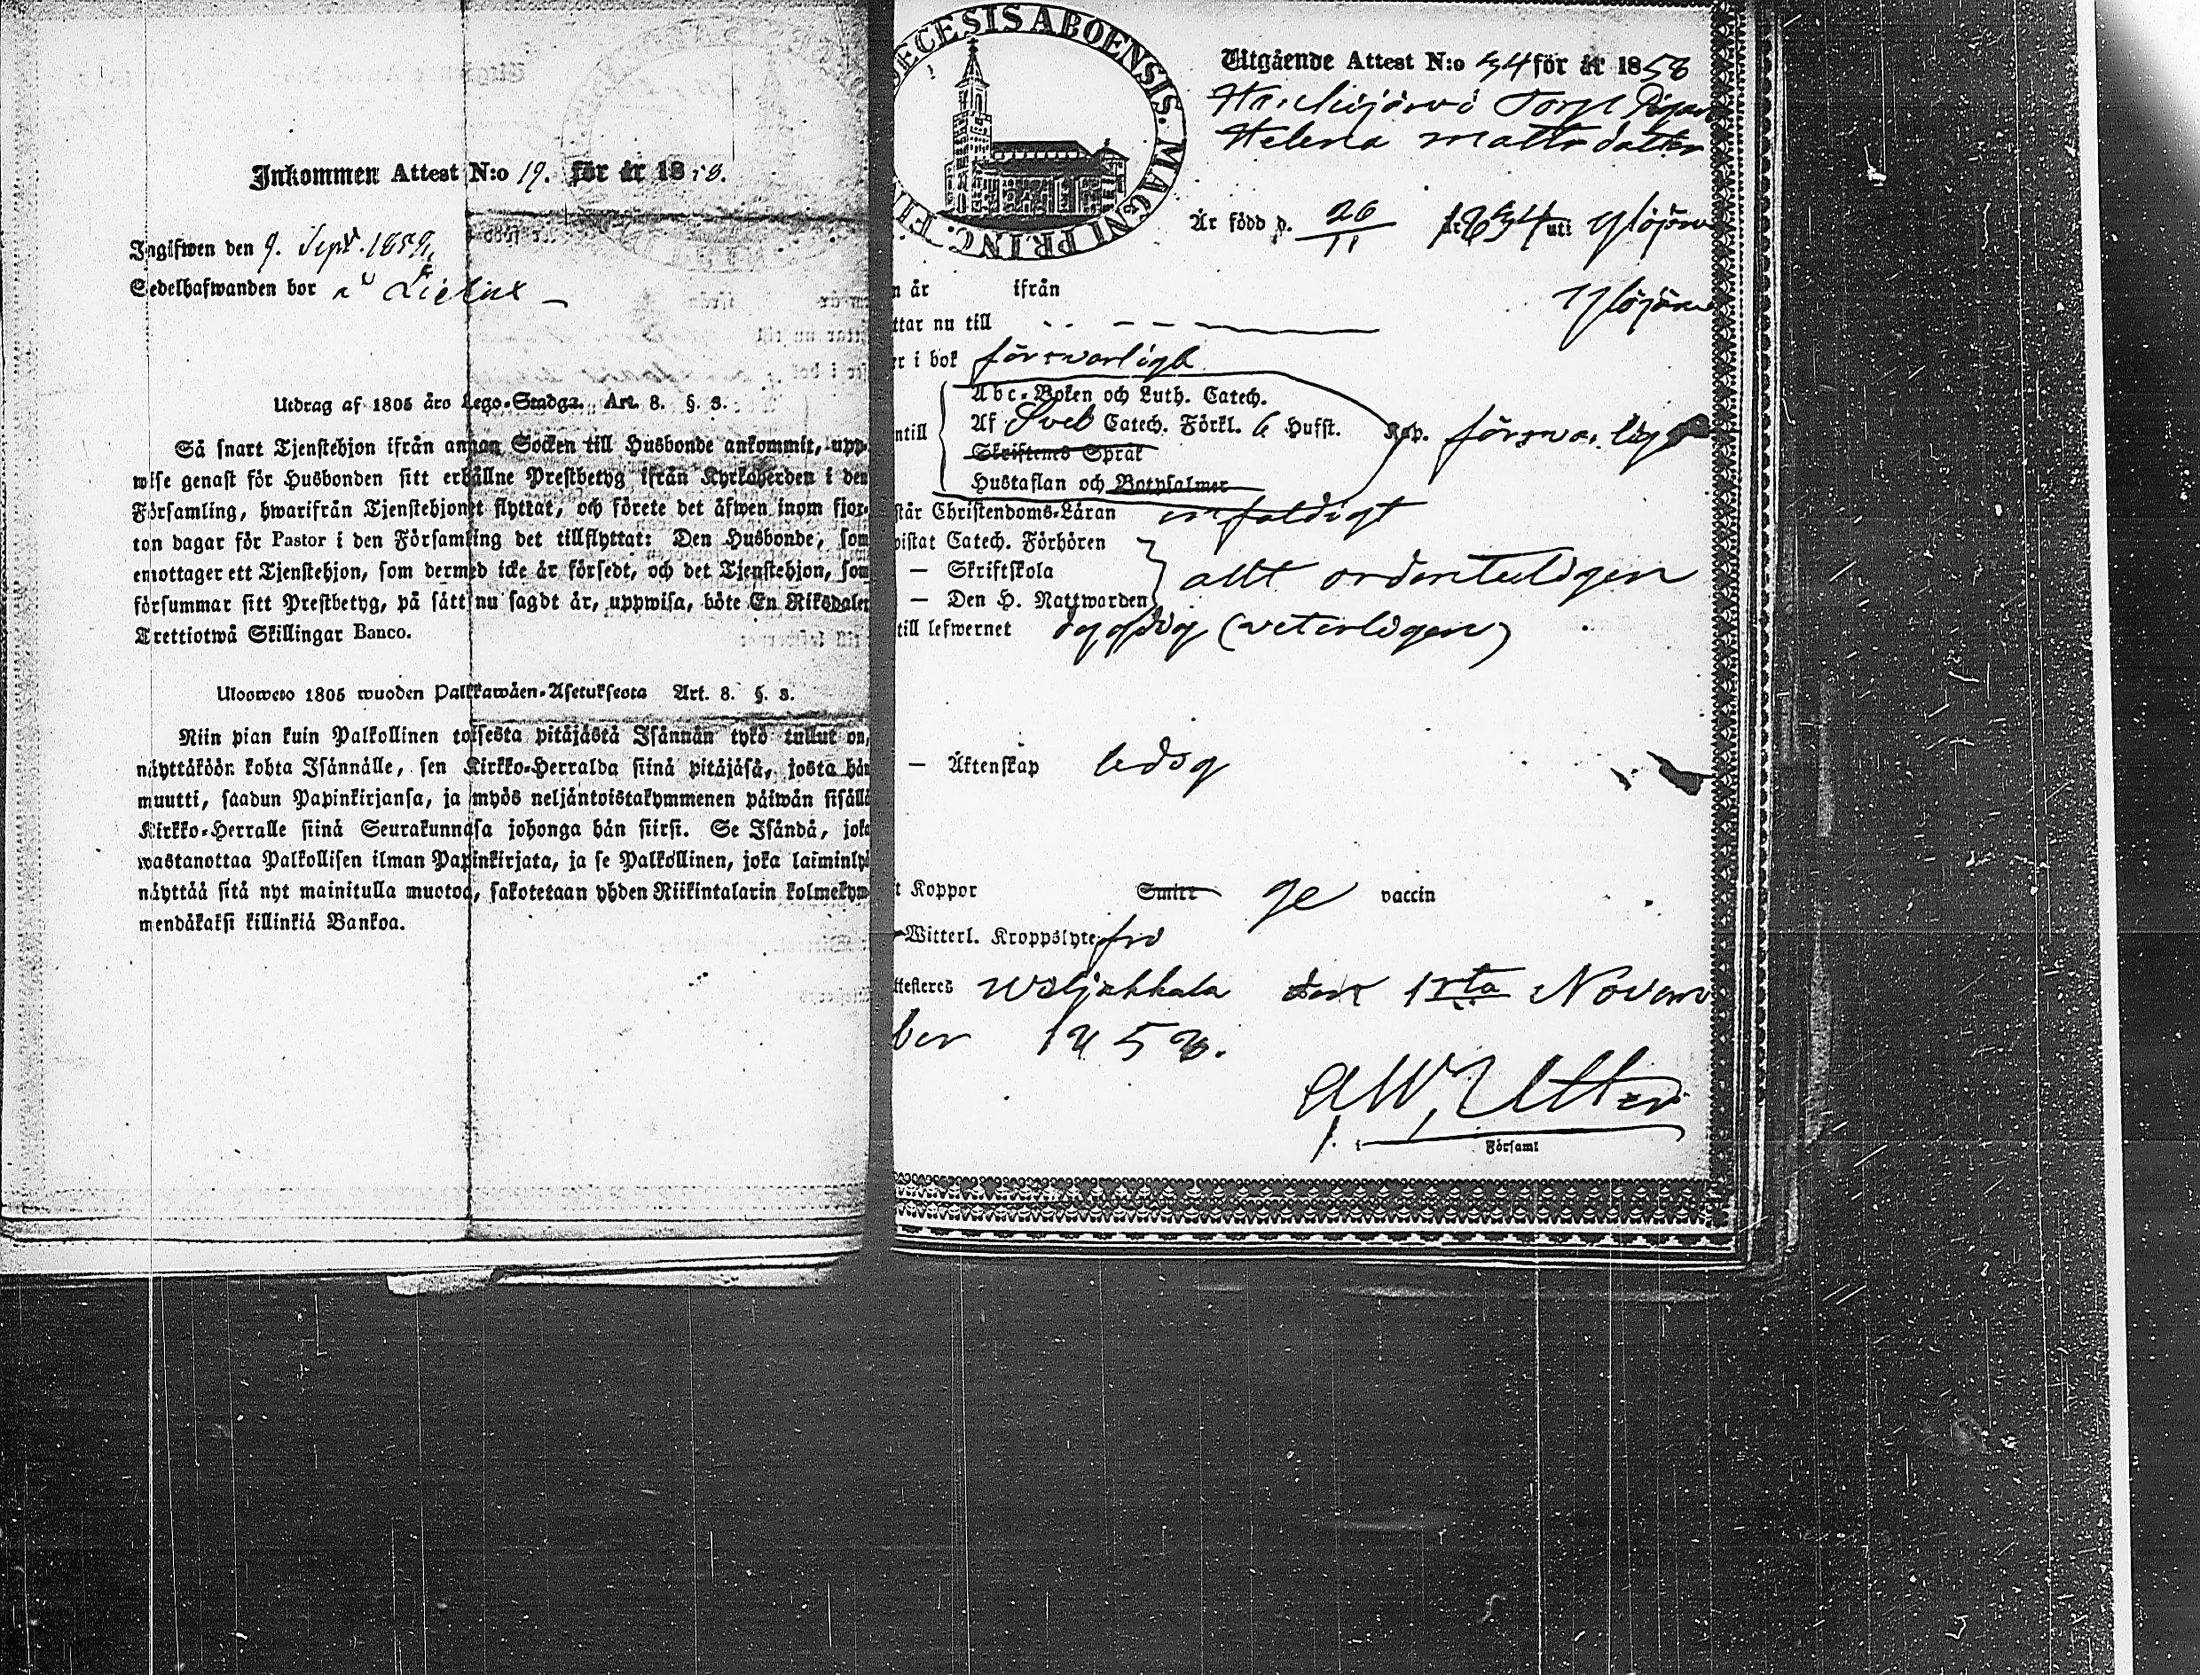 Inkommen Attest N:o 19. för år 1858.
Ingifwen den 9. Sept. 1859.
Sedelhafwanden bor å
Utdrag af 1805 års Lego-Stadga. Art. 8. §. 3.
Så snart Tjenstehjon ifrån annan Socken till Husbonde ankommit, upp-
wise genast för Husbonden sitt erhållne Prestbetyg ifrån Kyrkoherden i den
Församling, hwarifrån Tjenstehjonet flyttat, och förete det äfwen inom fjor-
ton dagar för Pastor i den Församling det tillflyttat: Den Husbonde, som
emottager ett Tjenstehjon, som dermed icke är försedt, och det Tjenstehjon, som
försummar sitt Prestbetyg, på sätt nu sagdt är, uppwisa, böte En Riksdaler
Trettiotwå Skillingar Banco.
Ulosweto 1805 wuoden Palkkawäen-Asetuksesta Art. 8. §. 3.
Niin pian kuin Palkollinen toisesta pitäjästä Isännän tykö tullut on,
näyttäköön kohta Isännälle, sen Kirkko-Herralda siinä pitäjäsä, josta hän
muutti, saadun Papinkirjansa, ja myös neljäntoistakymmenen päiwän sisällä
Kirkko-Herralle siinä Seurakunnasa johonga hän siirsi. Se Isändä, joka
wastanottaa Palkollisen ilman Papinkirjata, ja se Palkollinen, joka laiminlyö
näyttää sitä nyt mainitulla muotoa, sakotetaan yhden Riikintalarin kolmekym-
mendäkaksi killinkiä Bankoa.
ECESIS ABOENSIS. MAGNI PRINC. FI
Utgående Attest N:o 34 för år 1858
Torp Pigan
Helena Mattsdotter
Är född d. 26/11 år 1834 uti Ylöjärvi
n år ifrån Ylöjärvi
ttar nu till
er i bok försvarligt
Abc-Boken och Luth. Catech.
Af Sveb Catech. Förkl. 6 Hufst.
ntill Kap. försvarligt
Skriftens Språk
Hustaflan och Botpsalmer
står Christendoms-Läran enfaldigt
vistat Catech. Förhören
— Skriftskola allt ordenteligen
— Den H. Nattwarden
till lefwernet dygdig (veterligen)
— Äktenskap ledig
t Koppor Smitt ge vaccin
Witterl. Kroppslyte fri
ttesteres Wiljakkala den 13ta Novem
ber 1858.
A W Utter
Församl